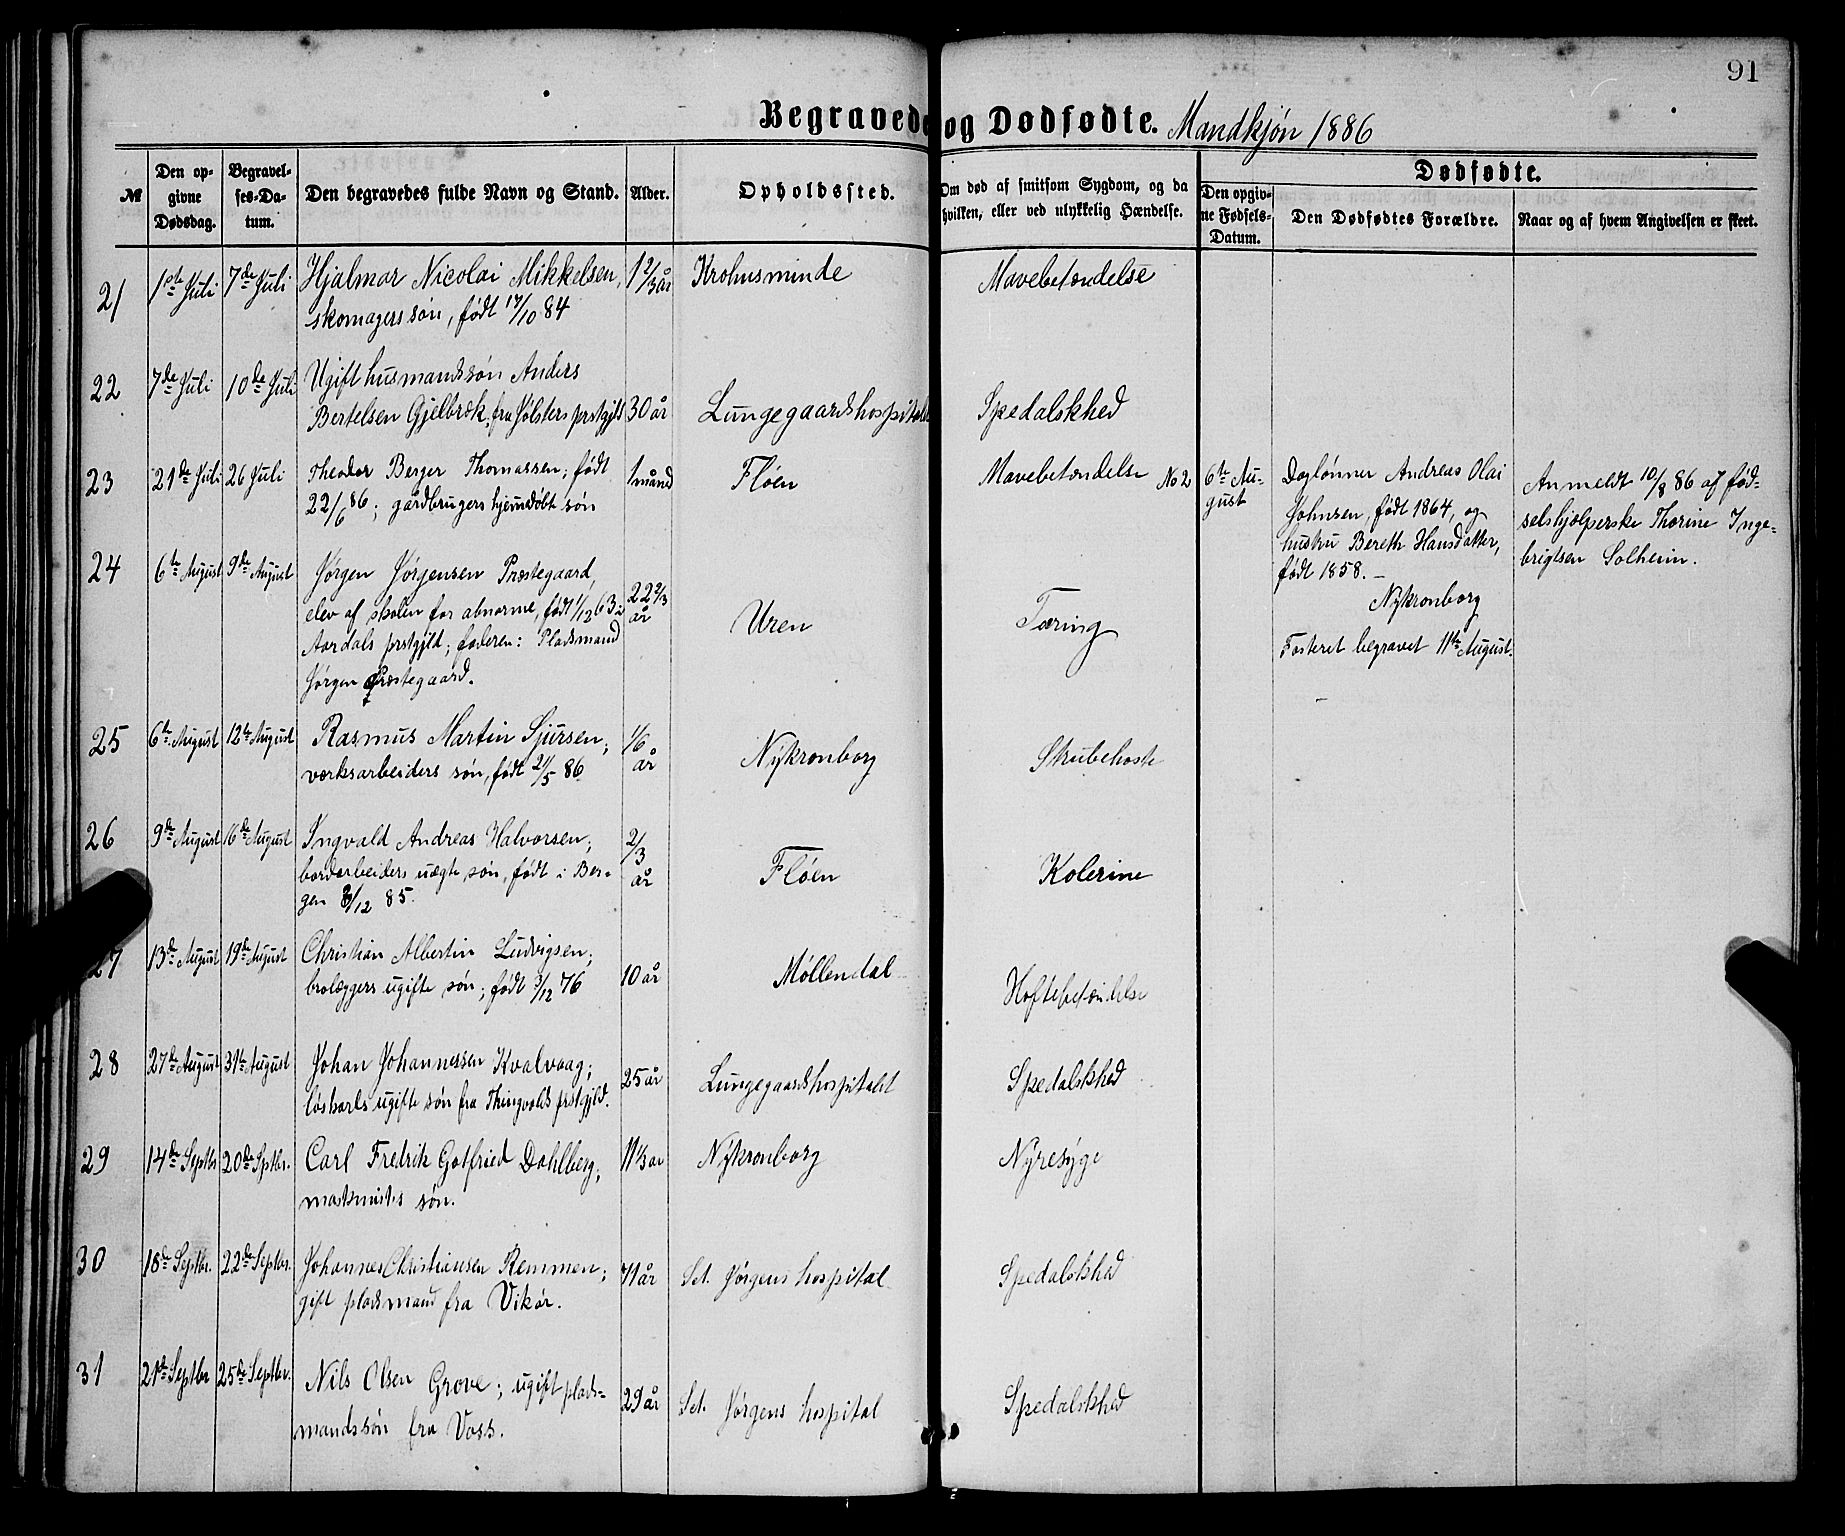 91
Begravede og Dødfødte. Mandkjøn 1886
№
Den opgivne Dødsdag.
Begravelses-Datum.
Den begravedes fulde Navn og Stand.
Alder.
Opholdssted.
Om død af smitsom Sygdom, og da hvilken, eller ved ulykkelig Hændelse.
Dødfødte.
Den opgivne Fødsels-Datum.
Den Dødfødtes Forældre.
Naar og af hvem Angivelsen er skeet.
21 1ste Juli 7de Juli Hjalmar Nicolai Mikkelsen, 1 2/3 år Krohnsminde Mavebetændelse
skomagers søn, født 17/10 84
22 7de Juli 10de Juli Ugift husmandssøn Anders
Bertelsen Gjelbræk, fra Jølsters prstgjld 30 år Lungegaardshospitalet Spedalskhed
23 21de Juli 26 Juli Theodor Berger Thomassen; født 1 måned Fløen Mavebetændelse
22/6 86; gårdbrugers hjemdøbt søn
No 2 6te August
Daglønner Andreas Olai
Johnsen, født 1864, og
hustru Bereth Hansdatter,
født 1858. –
Nykronborg
Fosteret begravet 11te August.
Anmeldt 10/8 86 af fød-
selshjælperske Thorine Inge-
brigtsen Solheim.
24 6te August 9de August Jørgen Jørgensen Præstegaard, 22 2/3 år Uren Tæring
elev af skolen for abnorme, født 1/12 63 i
Aardals prstgjld; faderen: Pladsmand
Jørgen Præstegaard.
25 6te August 12te August Rasmus Martin Sjursen; 1/6 år Nykronborg Strubehoste
verksarbeiders søn, født 21/5 86
26 9de August 16de August Ingvald Andreas Halvorsen; 2/3 år Fløen Kolerine
bordarbeiders uægte søn, født i Ber-
gen /12 85.
27 13de August 19de August Christian Albertin Ludvigsen; 10 år Møllendal Hoftebetændelse
brolæggers ugifte søn; født 3/12 76
28 27de August 31te August Johan Johannessen Kvalvaag; 25 år Lungegaardshospitalet Spedalskhed
løskarls ugifte søn fra Thingvolds prstgjld.
29 14de Septbr 20de Septbr. Carl Fredrik Gotfried Dahlberg, 11 1/3 år Nykronborg Nyresyge
maskinistes søn.
30 18de Septbr. 22de Septbr. Johannes Christiansen Remmen; 71 år Sct. Jørgens hospital Spedalskhed
gift pladsmand fra Vikør.
31 21de Septbr 25de Septbr. Nils Olsen Grove; ugift plads- 29 år Sct. Jørgens hospital Spedalskhed
mandssøn fra Voss.